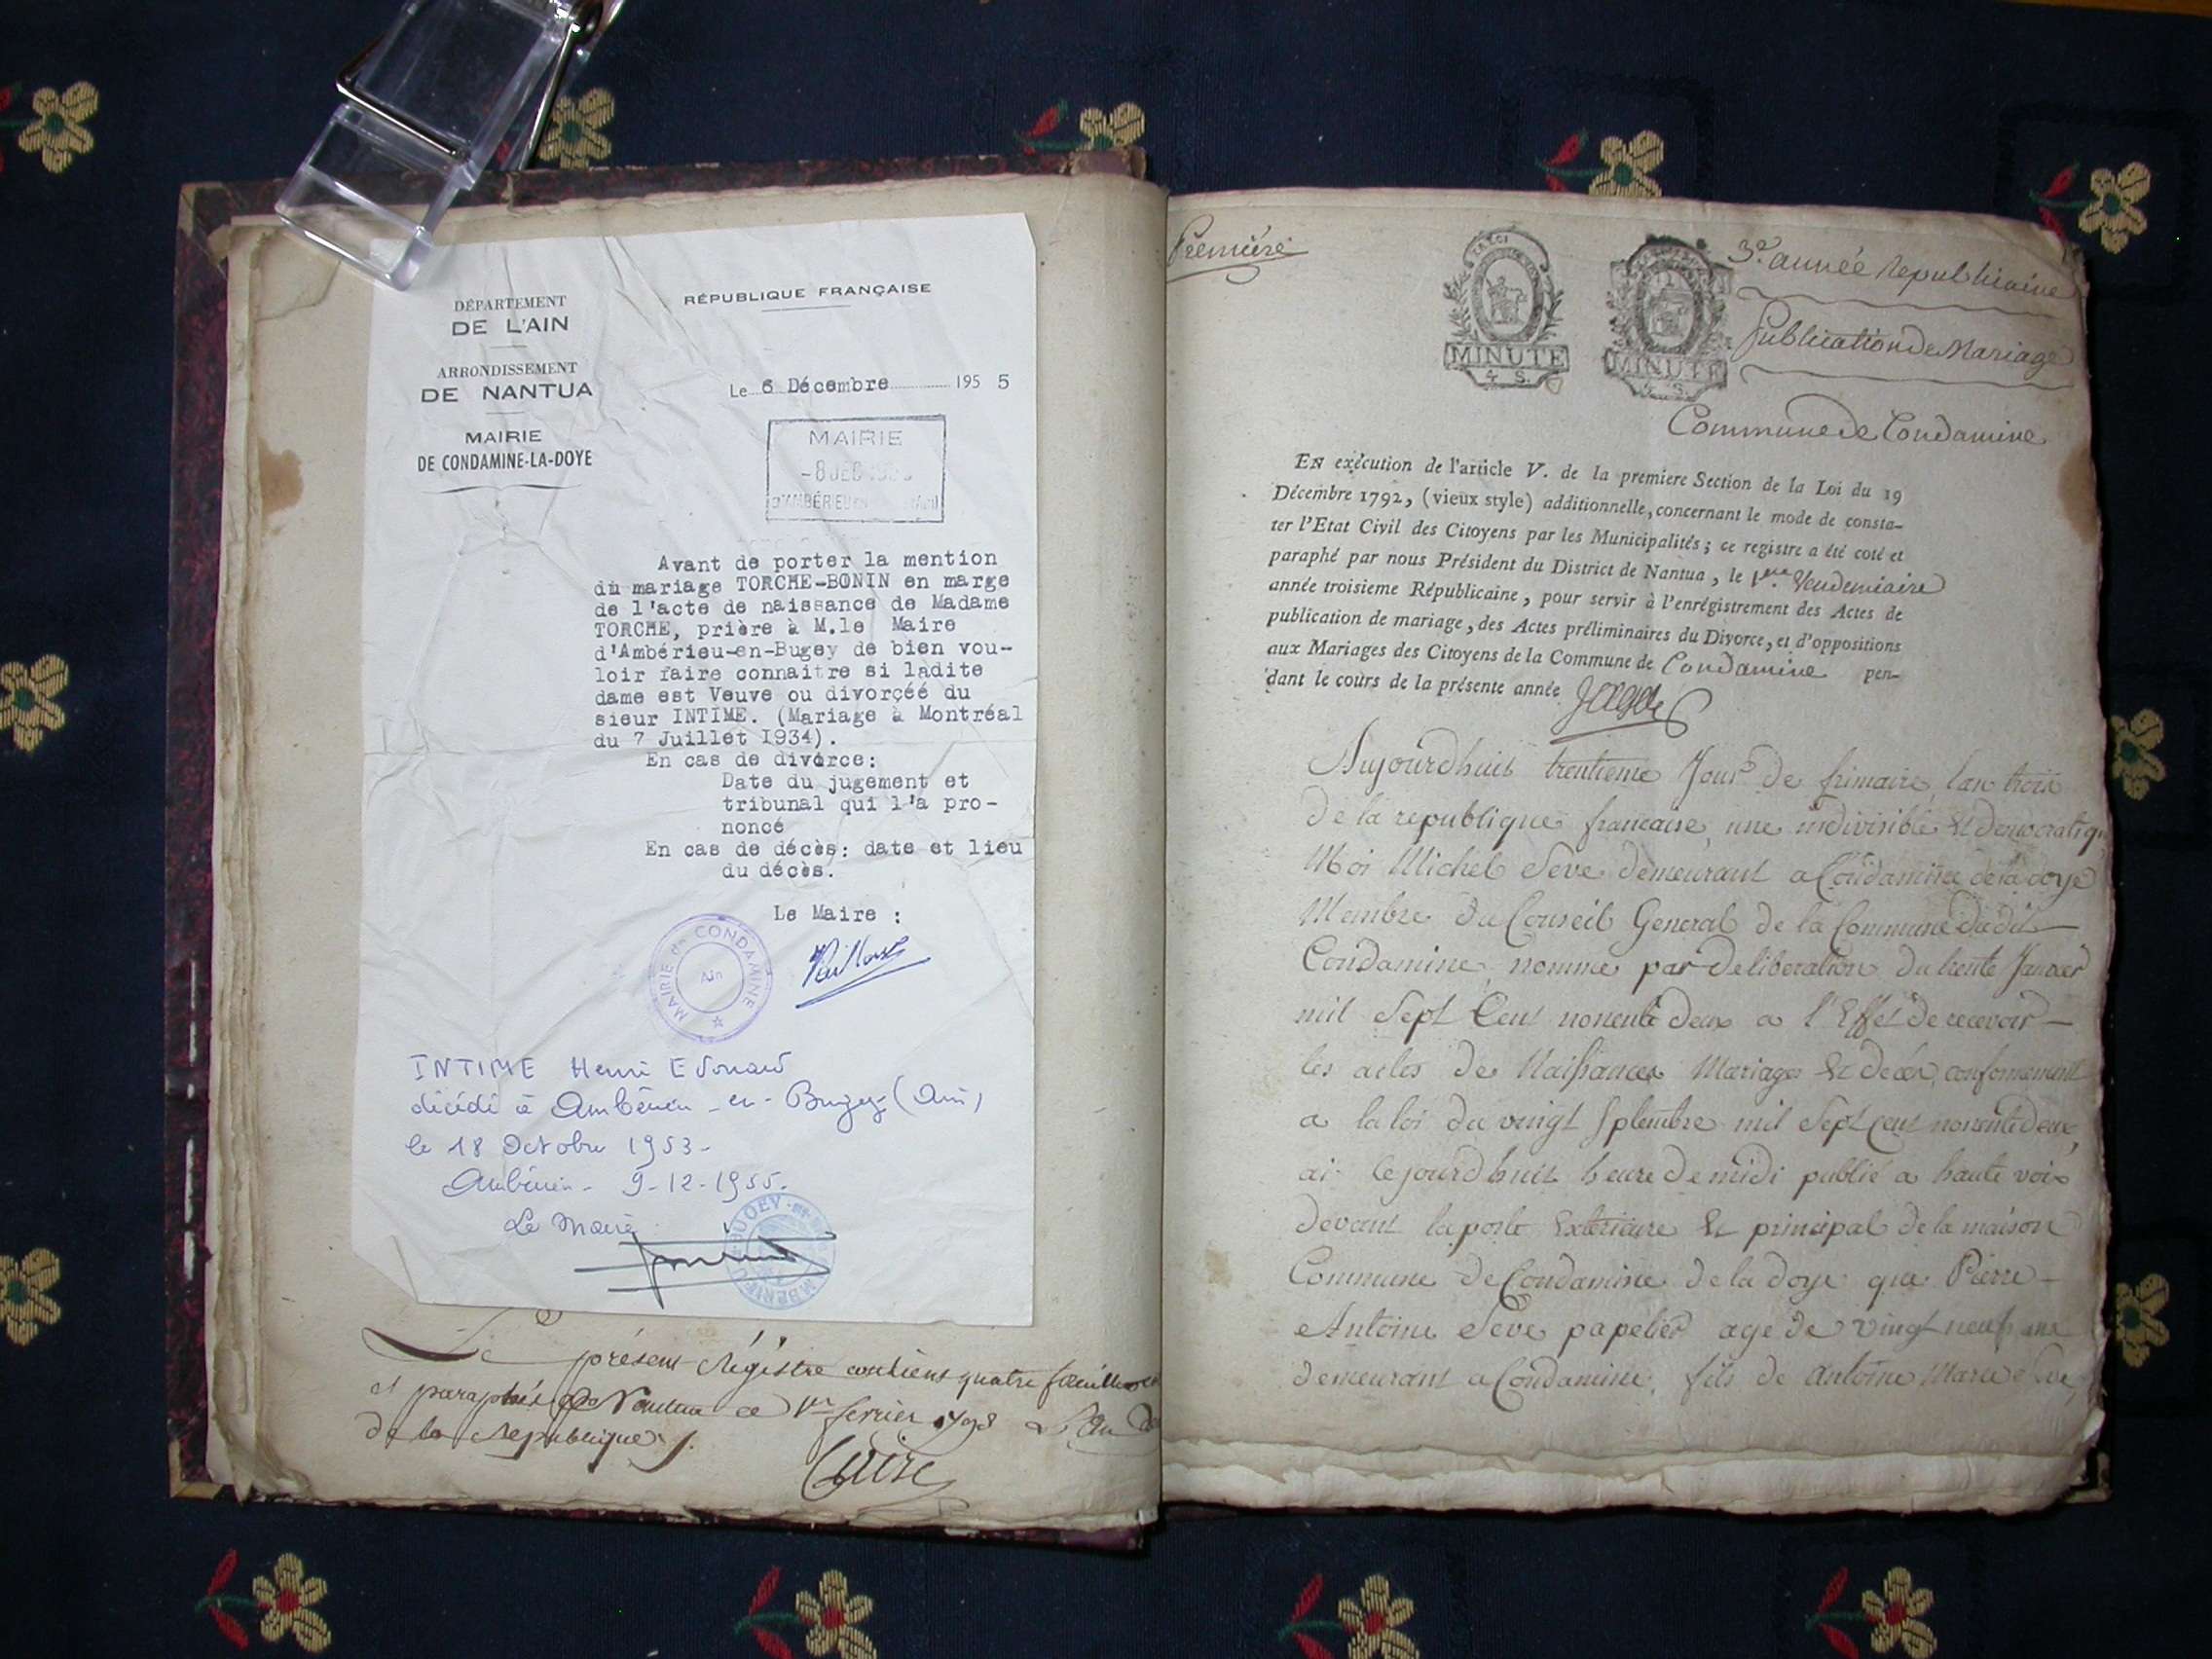 DÉPARTEMENT
DE L'AIN
ARRONDISSEMENT
DE NANTUA
MAIRIE
DE CONDAMINE-LA-DOYE
RÉPUBLIQUE FRANÇAISE
Le 6 Décembre 195 5
MAIRIE
-8 DEC
D'AMBÉRIEU
Avant de porter la mention
du mariage TORCHE-BONIN en marge
de l'acte de naissance de Madame
TORCHE, prière à M.le Maire
d'Ambérieu-en-Bugey de bien vou-
loir faire connaitre si ladite
dame est Veuve ou divorcéé du
sieur INTIME. (Mariage à Montréal
du 7 Juillet I934).
En cas de divorce:
Date du jugement et
tribunal qui l'a pro-
noncé
En cas de décès: date et lieu
du décès.
Le Maire :
MAIRIE de CONDAMINE
Ain
INTIME Henri Edouard
décédé à Ambérieu-en-Bugey (Ain)
le 18 Octobre 1953-
Ambérieu- 9-12-1955-
Le Maire
Le présent Régistre contient quatre feuilles
et paraphés Nantua ce 1er fevrier 1793 L'an
de la République
Première
MINUTE
4 S.
MINUTE
4 S.
3e année Republicaine
Publication de Mariage
Commune de Condamine
EN exécution de l'article V. de la premiere Section de la Loi du 19
Décembre 1792, (vieux style) additionnelle, concernant le mode de consta-
ter l'Etat Civil des Citoyens par les Municipalités; ce registre a été coté et
paraphé par nous Président du District de Nantua, le 1er Vendemiaire
année troisieme Républicaine, pour servir à l'enrégistrement des Actes de
publication de mariage, des Actes préliminaires du Divorce, et d'oppositions
aux Mariages des Citoyens de la Commune de Condamine pen-
dant le cours de la présente année
Aujourdhuit trentieme Jour de frimaire lan trois
de la republique francaise une indivisible et democratiq
Moi Michel Seve demeurant a Condamine de la doye
Membre du Conseil General de la Commune dudit
Condamine nomme par deliberation du trente Janvier
mil Sept Cent nonente deux a l'Effet de recevoir
les actes de Naissances Mariages et deces conformement
a la loi du vingt Septembre mil Sept Cent nonente deux,
ai cejourdhuit heure de midi publié a haute voix
devant la porte Exterieure et principal de la maison
Commune de Condamine de la doye que Pierre
Antoine Seve papelier age de vingt neuf ans
demeurant a Condamine, fils de Antoine Marie Seve